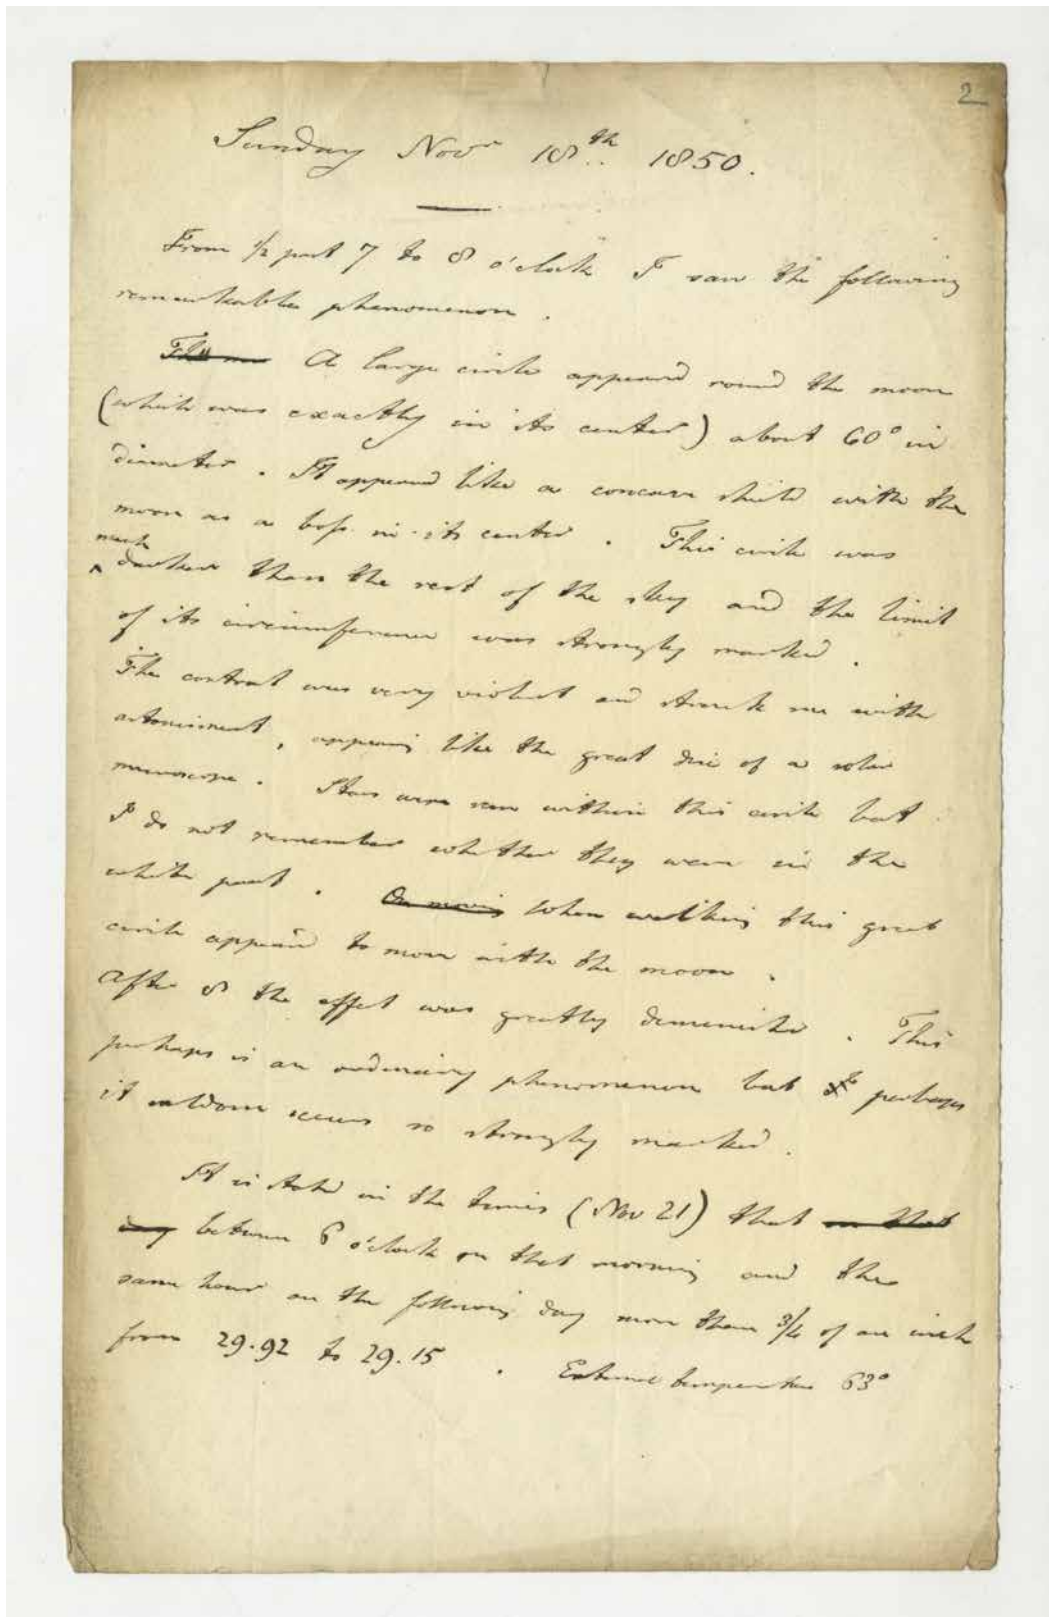 2
Sunday Novr 18th 1850.
From 1/2 past 7 to 8 o'clock I saw the following
remarkable phenomenon.
A large circle appeared round the moon
(which was exactly in its center) about 60° in
diameter. It appeared like a concave shield with the
moon as a boss in its center. This circle was
much
darker than the rest of the sky and the limit
of its circumference was strongly marked.
The contrast was very violent and struck me with
astonisment, appearing like the great disc of a solar
microscope. Stars were seen within this circle but
I do not remember whether they were in the
white part. On moving When walking this great
circle appeared to move with the moon.
After 8 the effect was greatly diminished. This
perhaps is an ordinary phenomenon but perhaps
it seldom occurs so strongly marked.
It is stated in the times (Nov 21) that on that
day between 6 o'clock on that morning and the
same hour on the following day more than 3/4 of an inch
from 29.92 to 29.15. External temperature 63°